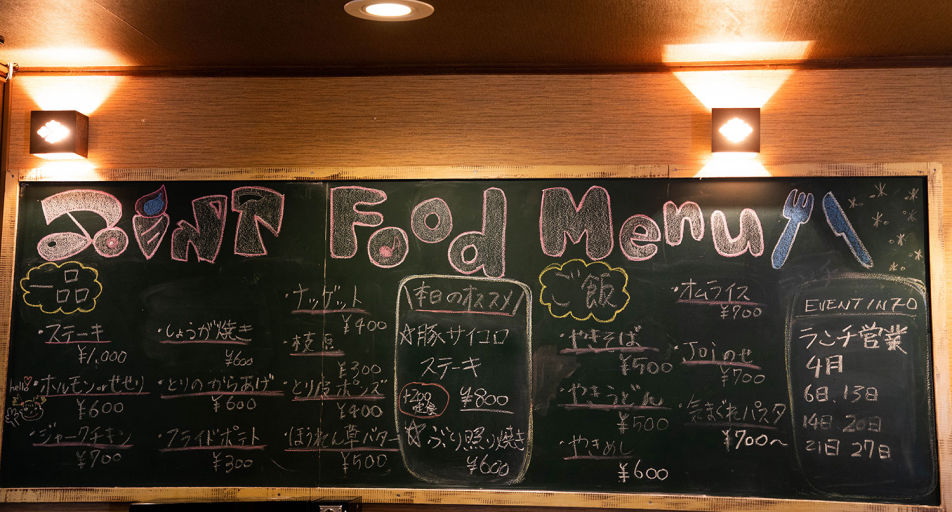 JOINT Food Menu
一品
・ステーキ
¥1,000
hello
・ホルモンorせせり
¥600
・ジャークチキン
¥700
・しょうが焼き
¥600
・とりのからあげ
¥600
・フライドポテト
¥300
・ナッゲット
¥400
・枝豆
¥300
・とり皮ポンズ
¥400
・ほうれん草バター
¥500
本日のオススメ
☆豚サイコロ
ステーキ
+200
定食
¥800
☆ぶり照り焼き
¥600
ご飯
・やきそば
¥500
・やきうどん
¥500
・やきめし
¥600
・オムライス
¥700
・Joiのせ
¥700
・気まぐれパスタ
¥700〜
EVENT INFO
ランチ営業
4月
6日.13日
14日.20日
21日 27日